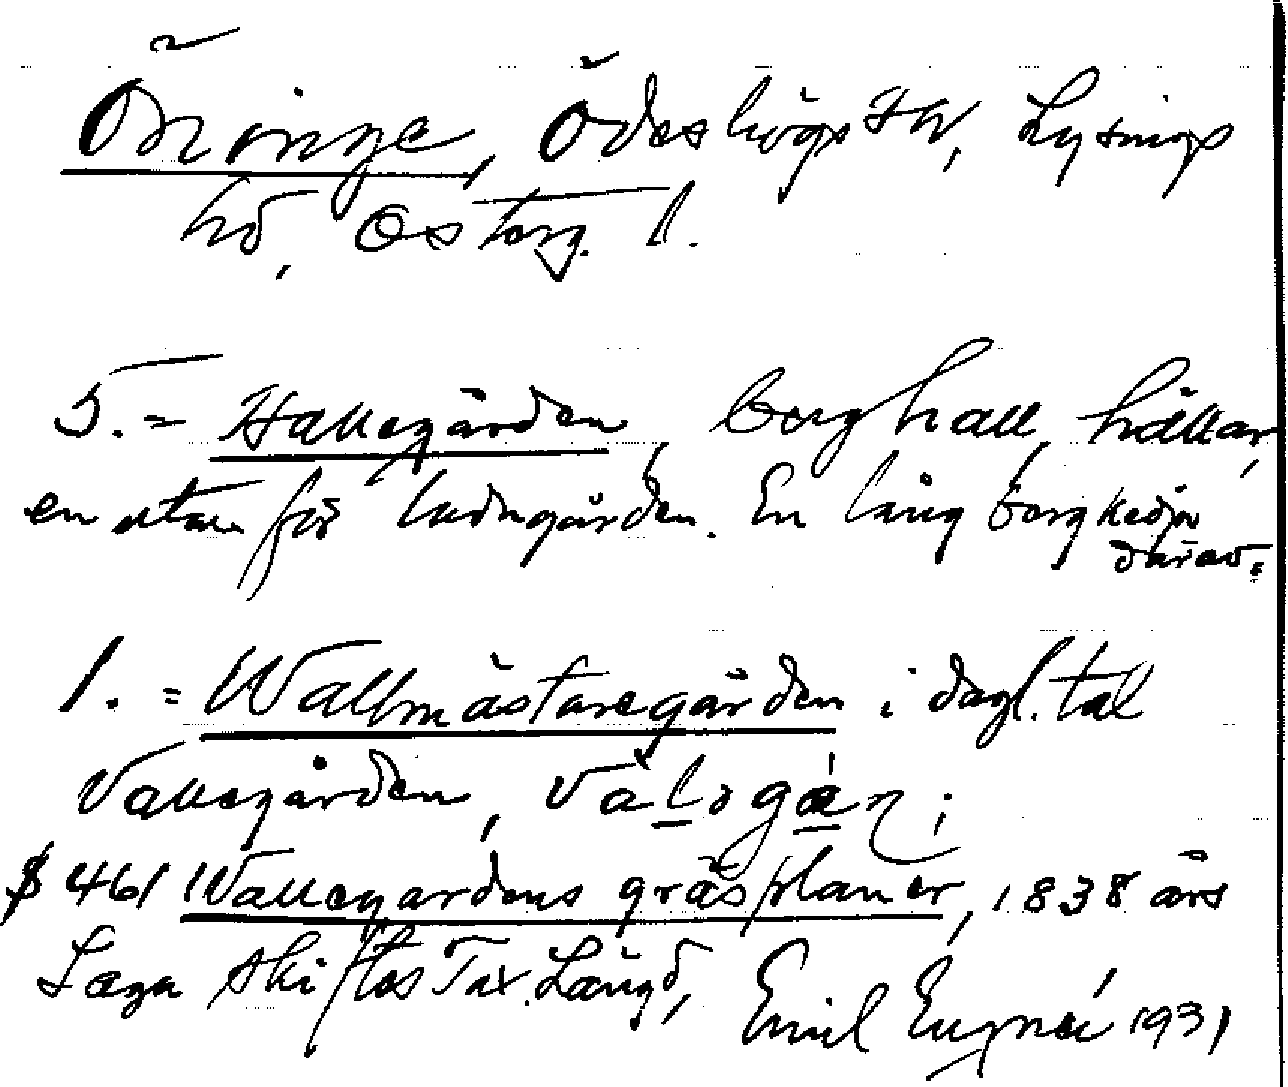 Öninge, Ödeshögs sn, Lysings
hd, Österg. l.
5. = Hallegården, berghall, hällar,
en utan för ladugården. En lång bergkedja
därav.
1. = Wallmästaregården i dagl. tal
Vallegården,
§ 461 Wallegardens gräsplaner, 1838 års
Laga skiftes Tax. Längd, Emil 1931